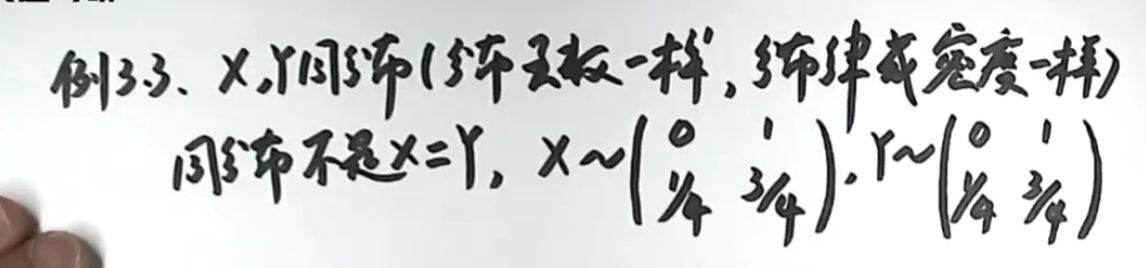 例3.3、X,Y同分布(分布函数一样,分布律或密度一样)
同分布不是X=Y, X~(0 1 1/4 3/4), Y~(0 1 1/4 3/4)